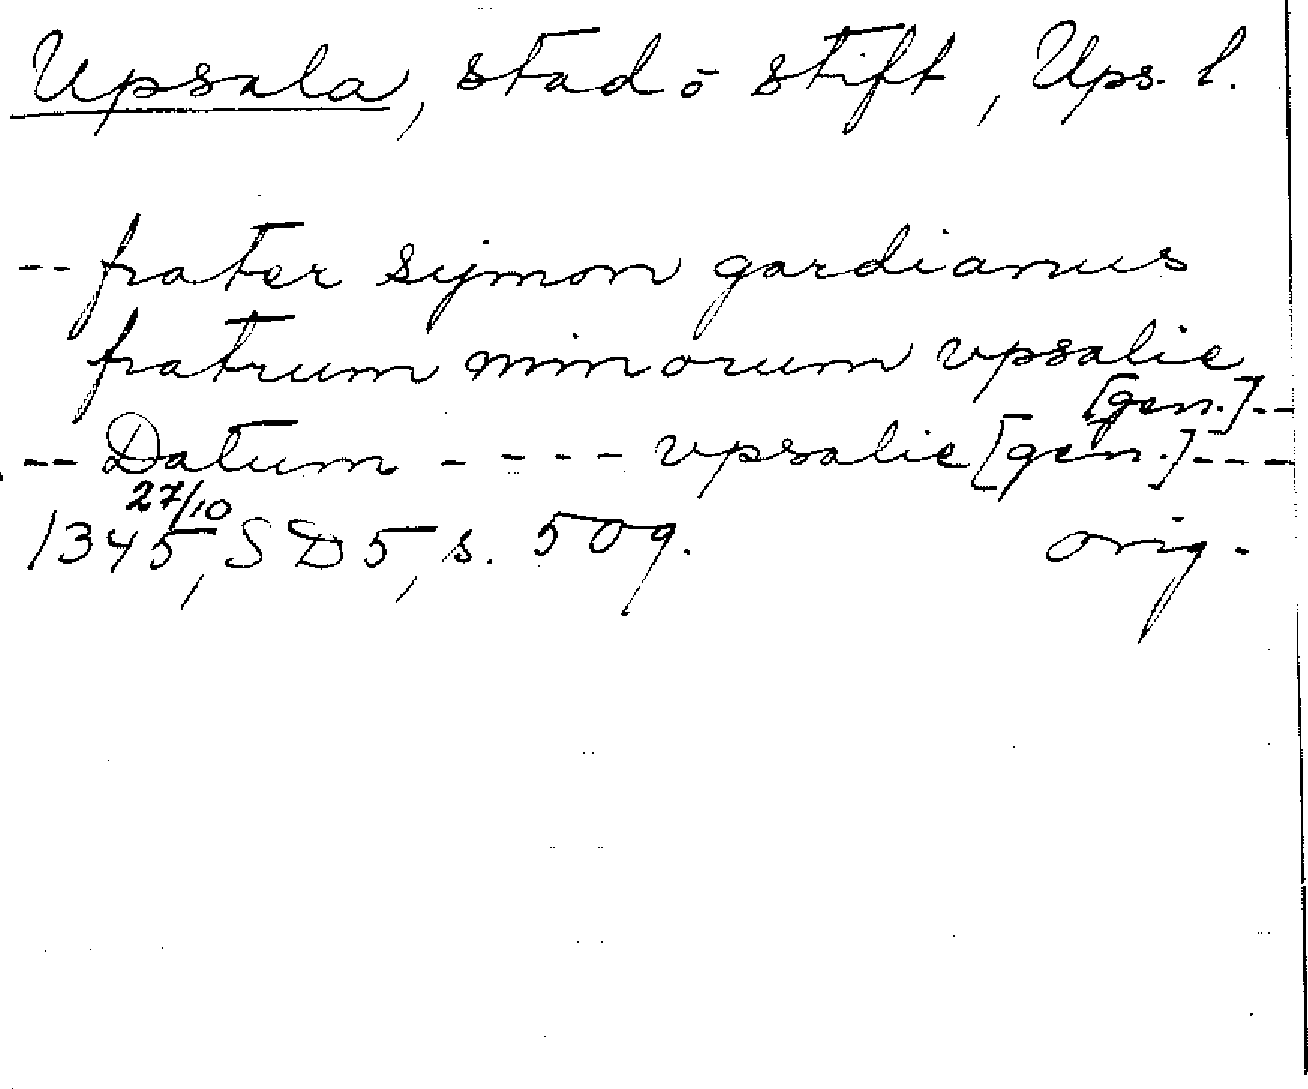 Upsala, stad o stift, Ups. l.
-- frater symon gardianus
fratrum minorum vpsalie
[gen.]--
-- Datum ---- vpsalie [gen.]---
27/10
1345, SD 5, s. 509. orig.